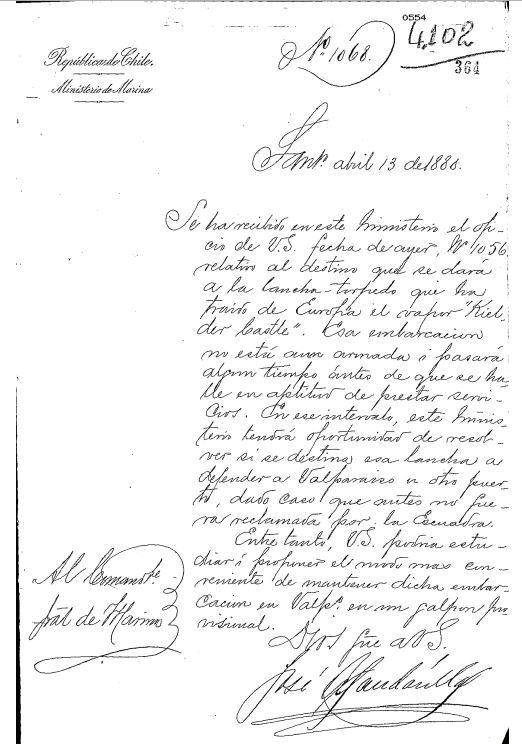 0554
4102
364
Nº 1068.
República de Chile.
Ministerio de Marina
Santº. abril 13 de 1880.
Se ha recibido en este Ministerio el ofi-
cio de V.S. fecha de ayer, Nº 1056
relativo al destino que se dará
a la lancha-torpedo que ha
traido de Europa el vapor "Kiel-
der Castle". Esa embarcacion
no está aun armada i pasará
algun tiempo ántes de que se ha-
lle en aptitud de prestar servi-
cios. En ese intervalo, este Minis-
terio tendrá oportunidad de resol-
ver si se destina esa lancha a
defender a Valparaiso u otro puer-
to, dado caso que antes no fue-
ra reclamada por la Escuadra.
Entre tanto, V.S. podria estu-
diar i proponer el modo mas con-
veniente de mantener dicha embar-
cacion en Valpº. en un galpon pro-
visional.
Dios gue a V.S.
José
Al Comandte
jral de Marina